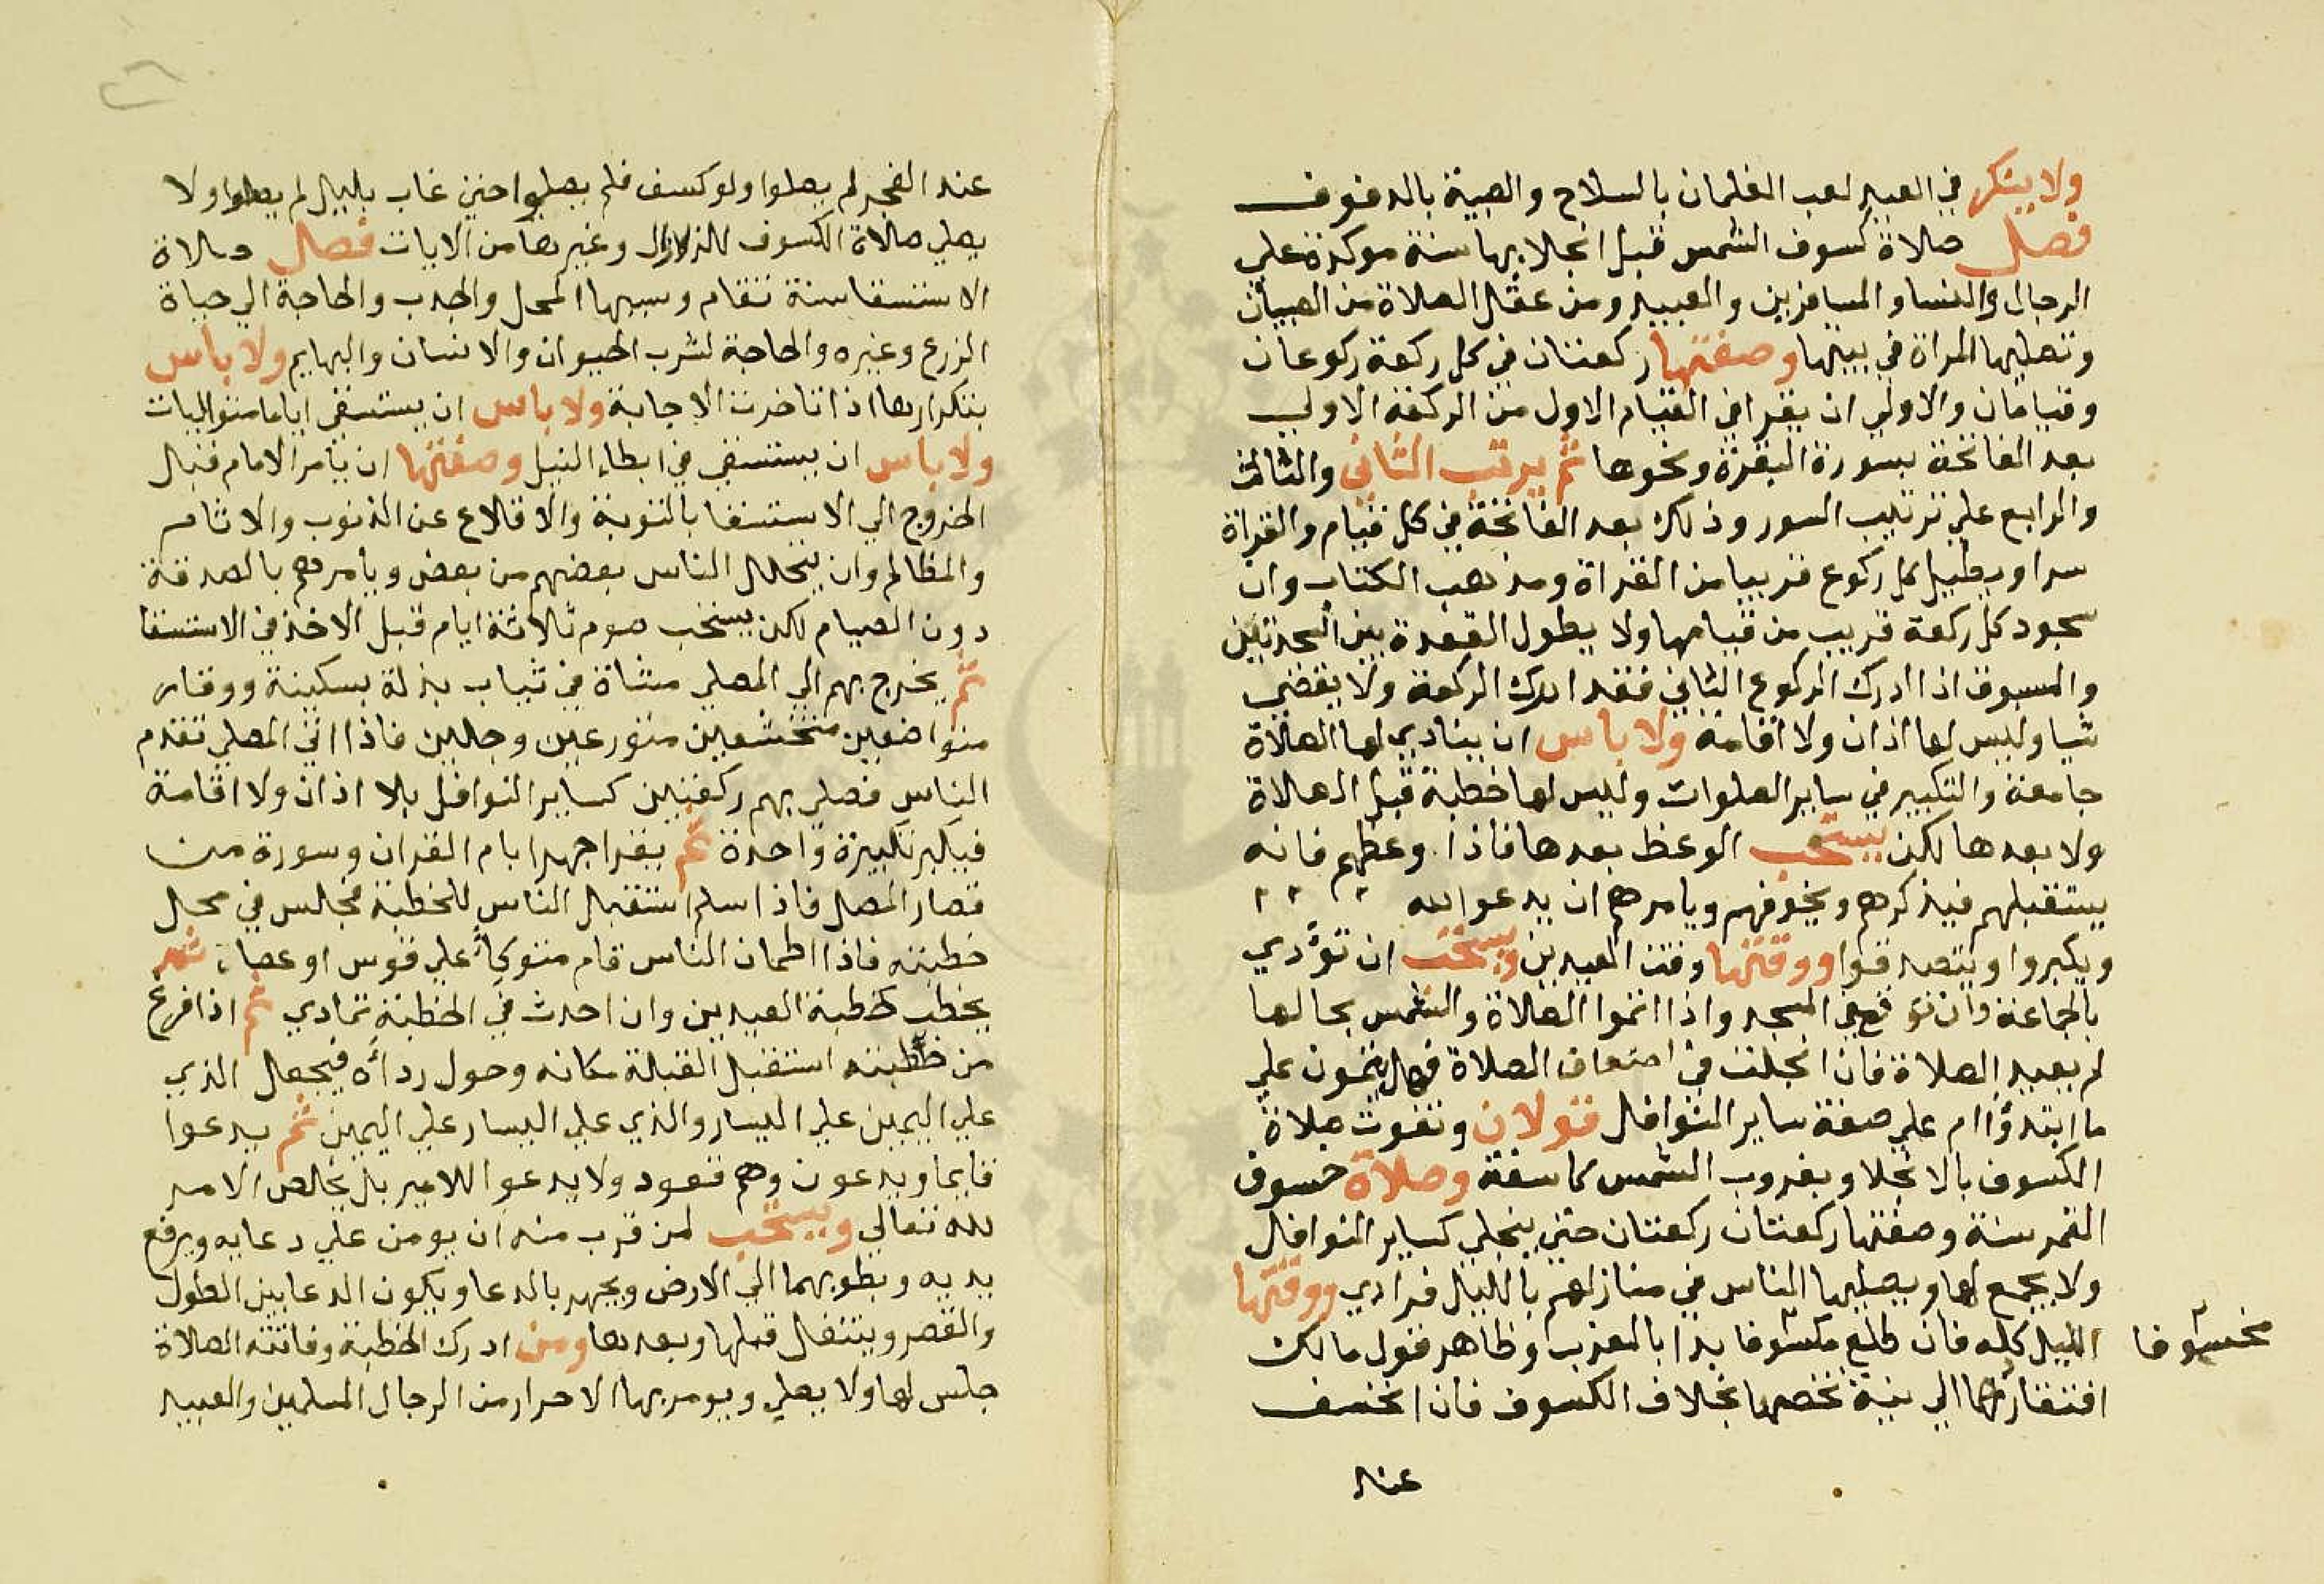 ولا ينكر في العيد لعب الغلمان بالسلاح والصبية بالدفوف
فصل صلاة كسوف الشمس قبل انجلايها سنة موكدة علي
الرجال والنسا والمسافرين والعبيد ومن عقل الصلاة من الصبيان
وتصليها المراة في بيتها وصفتها ركعتان في كل ركعة ركوعان
وقيامان والاولي ان يقرا في القيام الاول من الركعة الاولي
بعد الفاتحة بسورة البقرة ونحوها ثم يرتب الثاني والثالث
والرابع علي ترتيب السور وذلك بعد الفاتحة في كل قيام والقراة
سرا ويطيل كل ركوع قريبا من القراة ومذهب الكتاب وان
سجود كل ركعة قريب من قيامها ولا يطول القعدة بين السجدتين
والمسبوق اذا ادرك الركوع الثاني فقد ادرك الركعة ولا يقضي
شيا وليس لها اذان ولا اقامة ولا باس ان ينادي لها الصلاة
جامعة والتكبير في ساير الصلوات وليس لها خطبة قبل الصلاة
ولا بعدها لكن يستحب الوعظ بعدها فاذا وعظهم فانه
يستقبلهم فيذكرهم ويخوفهم ويامرهم ان يدعوا لله
ويكبروا ويتصدقوا ووقتها وقت العيدين ويستحب ان تؤدي
بالجماعة وان توقع في المسجد واذا اتموا الصلاة والشمس بحالها
لم يعيد الصلاة فان انجلت في اضعاف الصلاة فهل يتمون علي
ما ابتدؤا ام علي صفة ساير النوافل قولان وتفوت صلاة
الكسوف بالانجلا وبغروب الشمس كاسفة وصلاة خسوف
القمر سنة وصفتها ركعتان ركعتان حتي ينجلي كساير النوافل
ولا يجمع لها ويصليها الناس في منازلهم بالليل فرادي ووقتها
الليل كله فان طلع مكسوفا بدا بالمغرب وظاهر قول مالك
مخسوفا
افتقارها الي نية تخصها بخلاف الكسوف فان انخسف
عند
عند الفجر لم يصلوا ولو كسف فلم يصلوا حتي غاب بليل لم يصلوا ولا
يصلي صلاة الكسوف للزلازل وغيرها من الايات فصل وصلاة
الاستسقا سنة تقام وسببها المحل والجدب والحاجة الي حياة
الزرع وغيره والحاجة لشرب الحيوان والانسان والبهايم ولا باس
بتكرارها اذا تاخرت الاجابة ولا باس ان يستسقي اياما متواليات
ولا باس ان يستسقي في ابطاء النيل وصفتها ان يامر الامام قبل
الخروج الي الاستسقا بالتوبة والاقلاع عن الذنوب والاثام
والمظالم وان يتحلل الناس بعضهم من بعض ويامرهم بالصدقة
دون الصيام لكن يستحب صوم ثلاثة ايام قبل الاخذ في الاستسقا
ثم يخرج بهم الي المصلي مشاة في ثياب بذلة بسكينة ووقار
متواضعين متخشعين متورعين وجلين فاذا اتي المصلي تقدم
الناس فصلي بهم ركعتين كساير النوافل بلا اذان ولا اقامة
فيكبر تكبيرة واحدة ثم يقرا جهرا بام القران وسورة من
قصار المفصل فاذا سلم استقبل الناس للخطبة فجلس في محل
خطبته فاذا اطمان الناس قام متوكاً علي قوس او عصا ثم
يخطب كخطبة العيدين وان احدث في الخطبة تمادي ثم اذا فرغ
من خطبته استقبل القبلة مكانه وحول رداءه فيجعل الذي
علي اليمين علي اليسار والذي علي اليسار علي اليمين ثم يدعوا
قايما ويدعون وهم قعود ولا يدعوا للامير بل يخلص الامر
لله تعالي ويستحب لمن قرب منه ان يومن علي دعايه ويرفع
يديه وبطونهما الي الارض ويجهر بالدعا ويكون الدعا بين الطول
والقصر ويتنفل قبلها وبعدها ومن ادرك الخطبة وفاتته الصلاة
جلس لها ولا يصلي ويومر بها الاحرار من الرجال المسلمين والعبيد